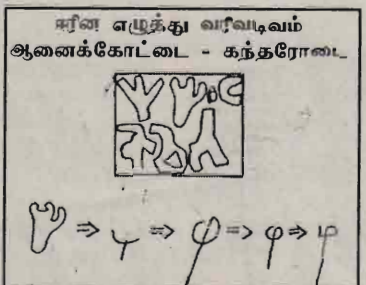 ஈரின எழுத்து வரிவடிவம்
ஆனைக்கோட்டை - கந்தரோடை